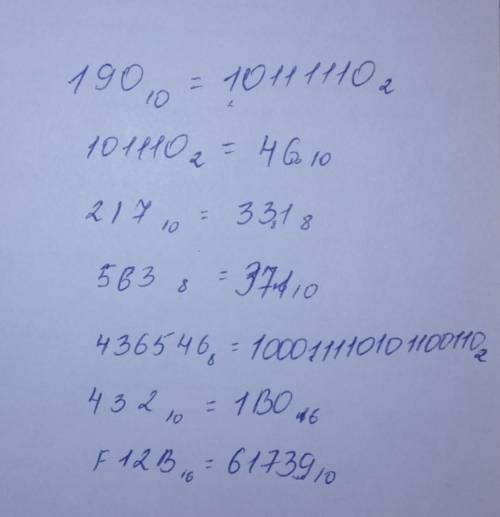 190₁₀ = 10111110₂
101110₂ = 46₁₀
217₁₀ = 331₈
563₈ = 371₁₀
436546₈ = 100011110101100110₂
432₁₀ = 1B0₁₆
F12B₁₆ = 61739₁₀